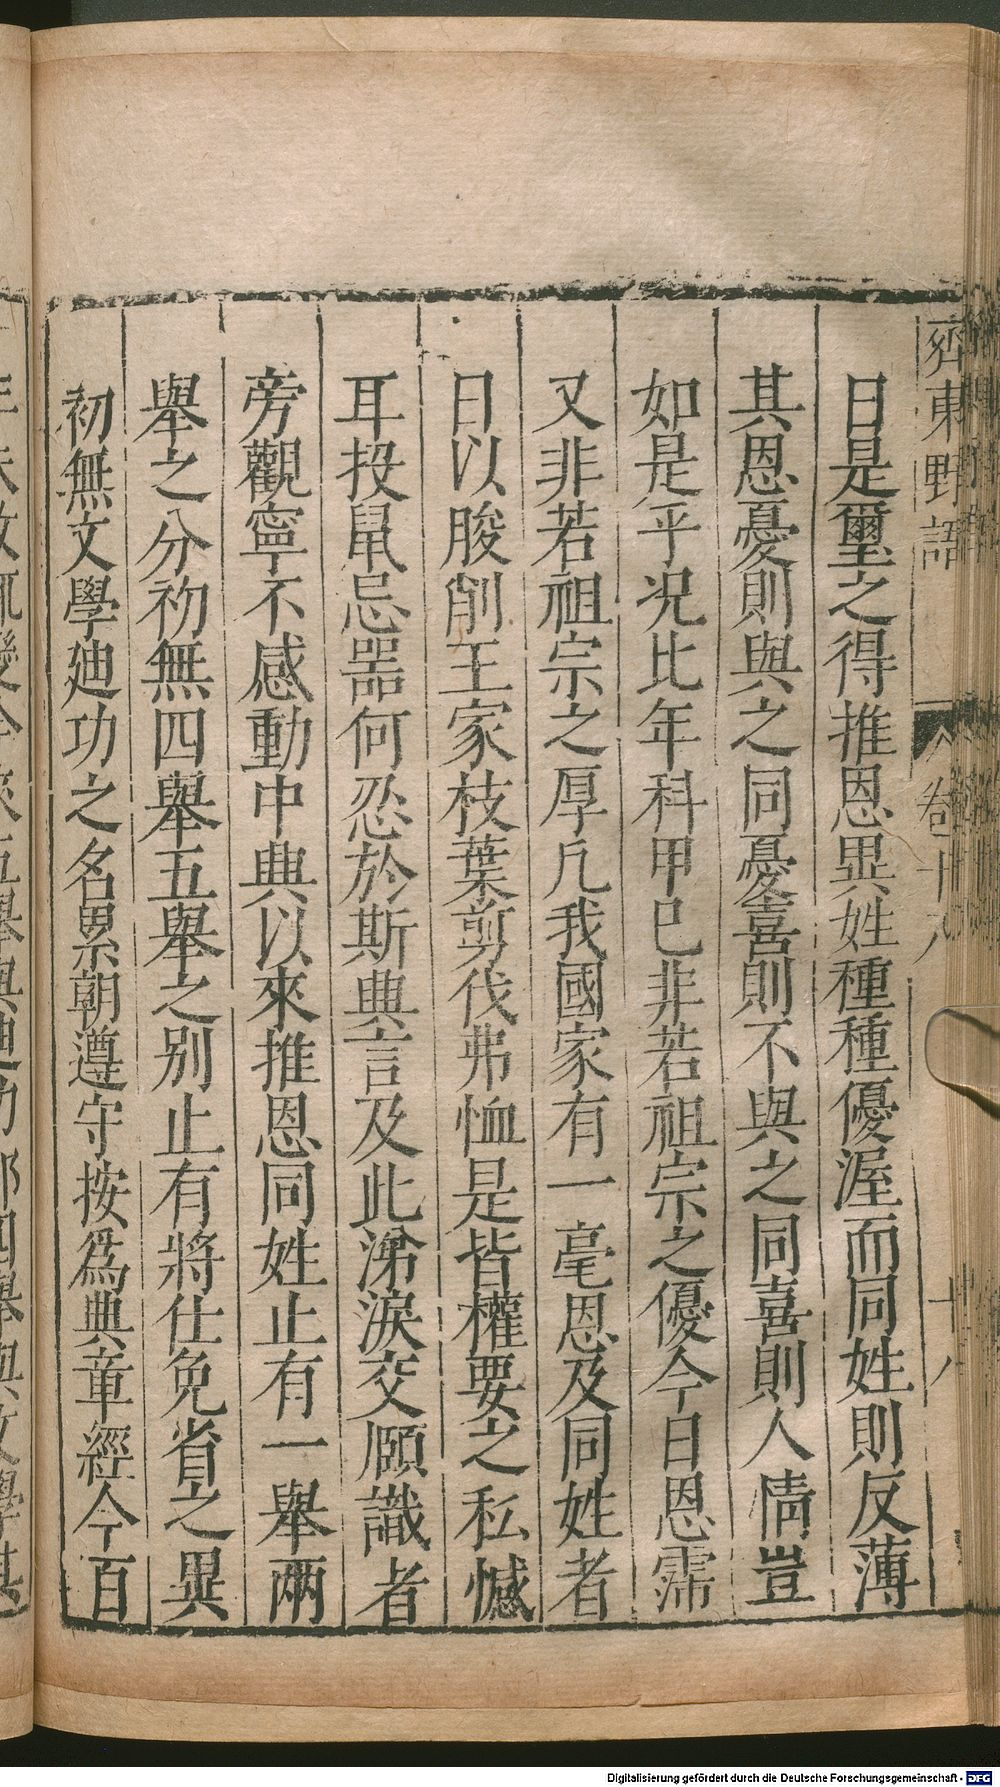 齊東野語
卷十九
十八
日是璽之得推恩異姓種種優渥而同姓則反薄
其恩憂則與之同憂喜則不與之同喜則人情豈
如是乎况比年科甲已非若祖宗之優今日恩霈
又非若祖宗之厚凡我國家有一毫恩及同姓者
日以朘削王家枝葉剪伐弗恤是皆權要之私憾
耳投鼠忌噐何忍於斯興言及此涕淚交頤識者
旁觀寧不感動中興以來推恩同姓止有一舉兩
舉之分初無四舉五舉之别止有將仕免省之異
初無文學廸功之名累朝遵守按爲典章經今百
Digitalisierung gefördert durch die Deutsche Forschungsgemeinschaft - DFG